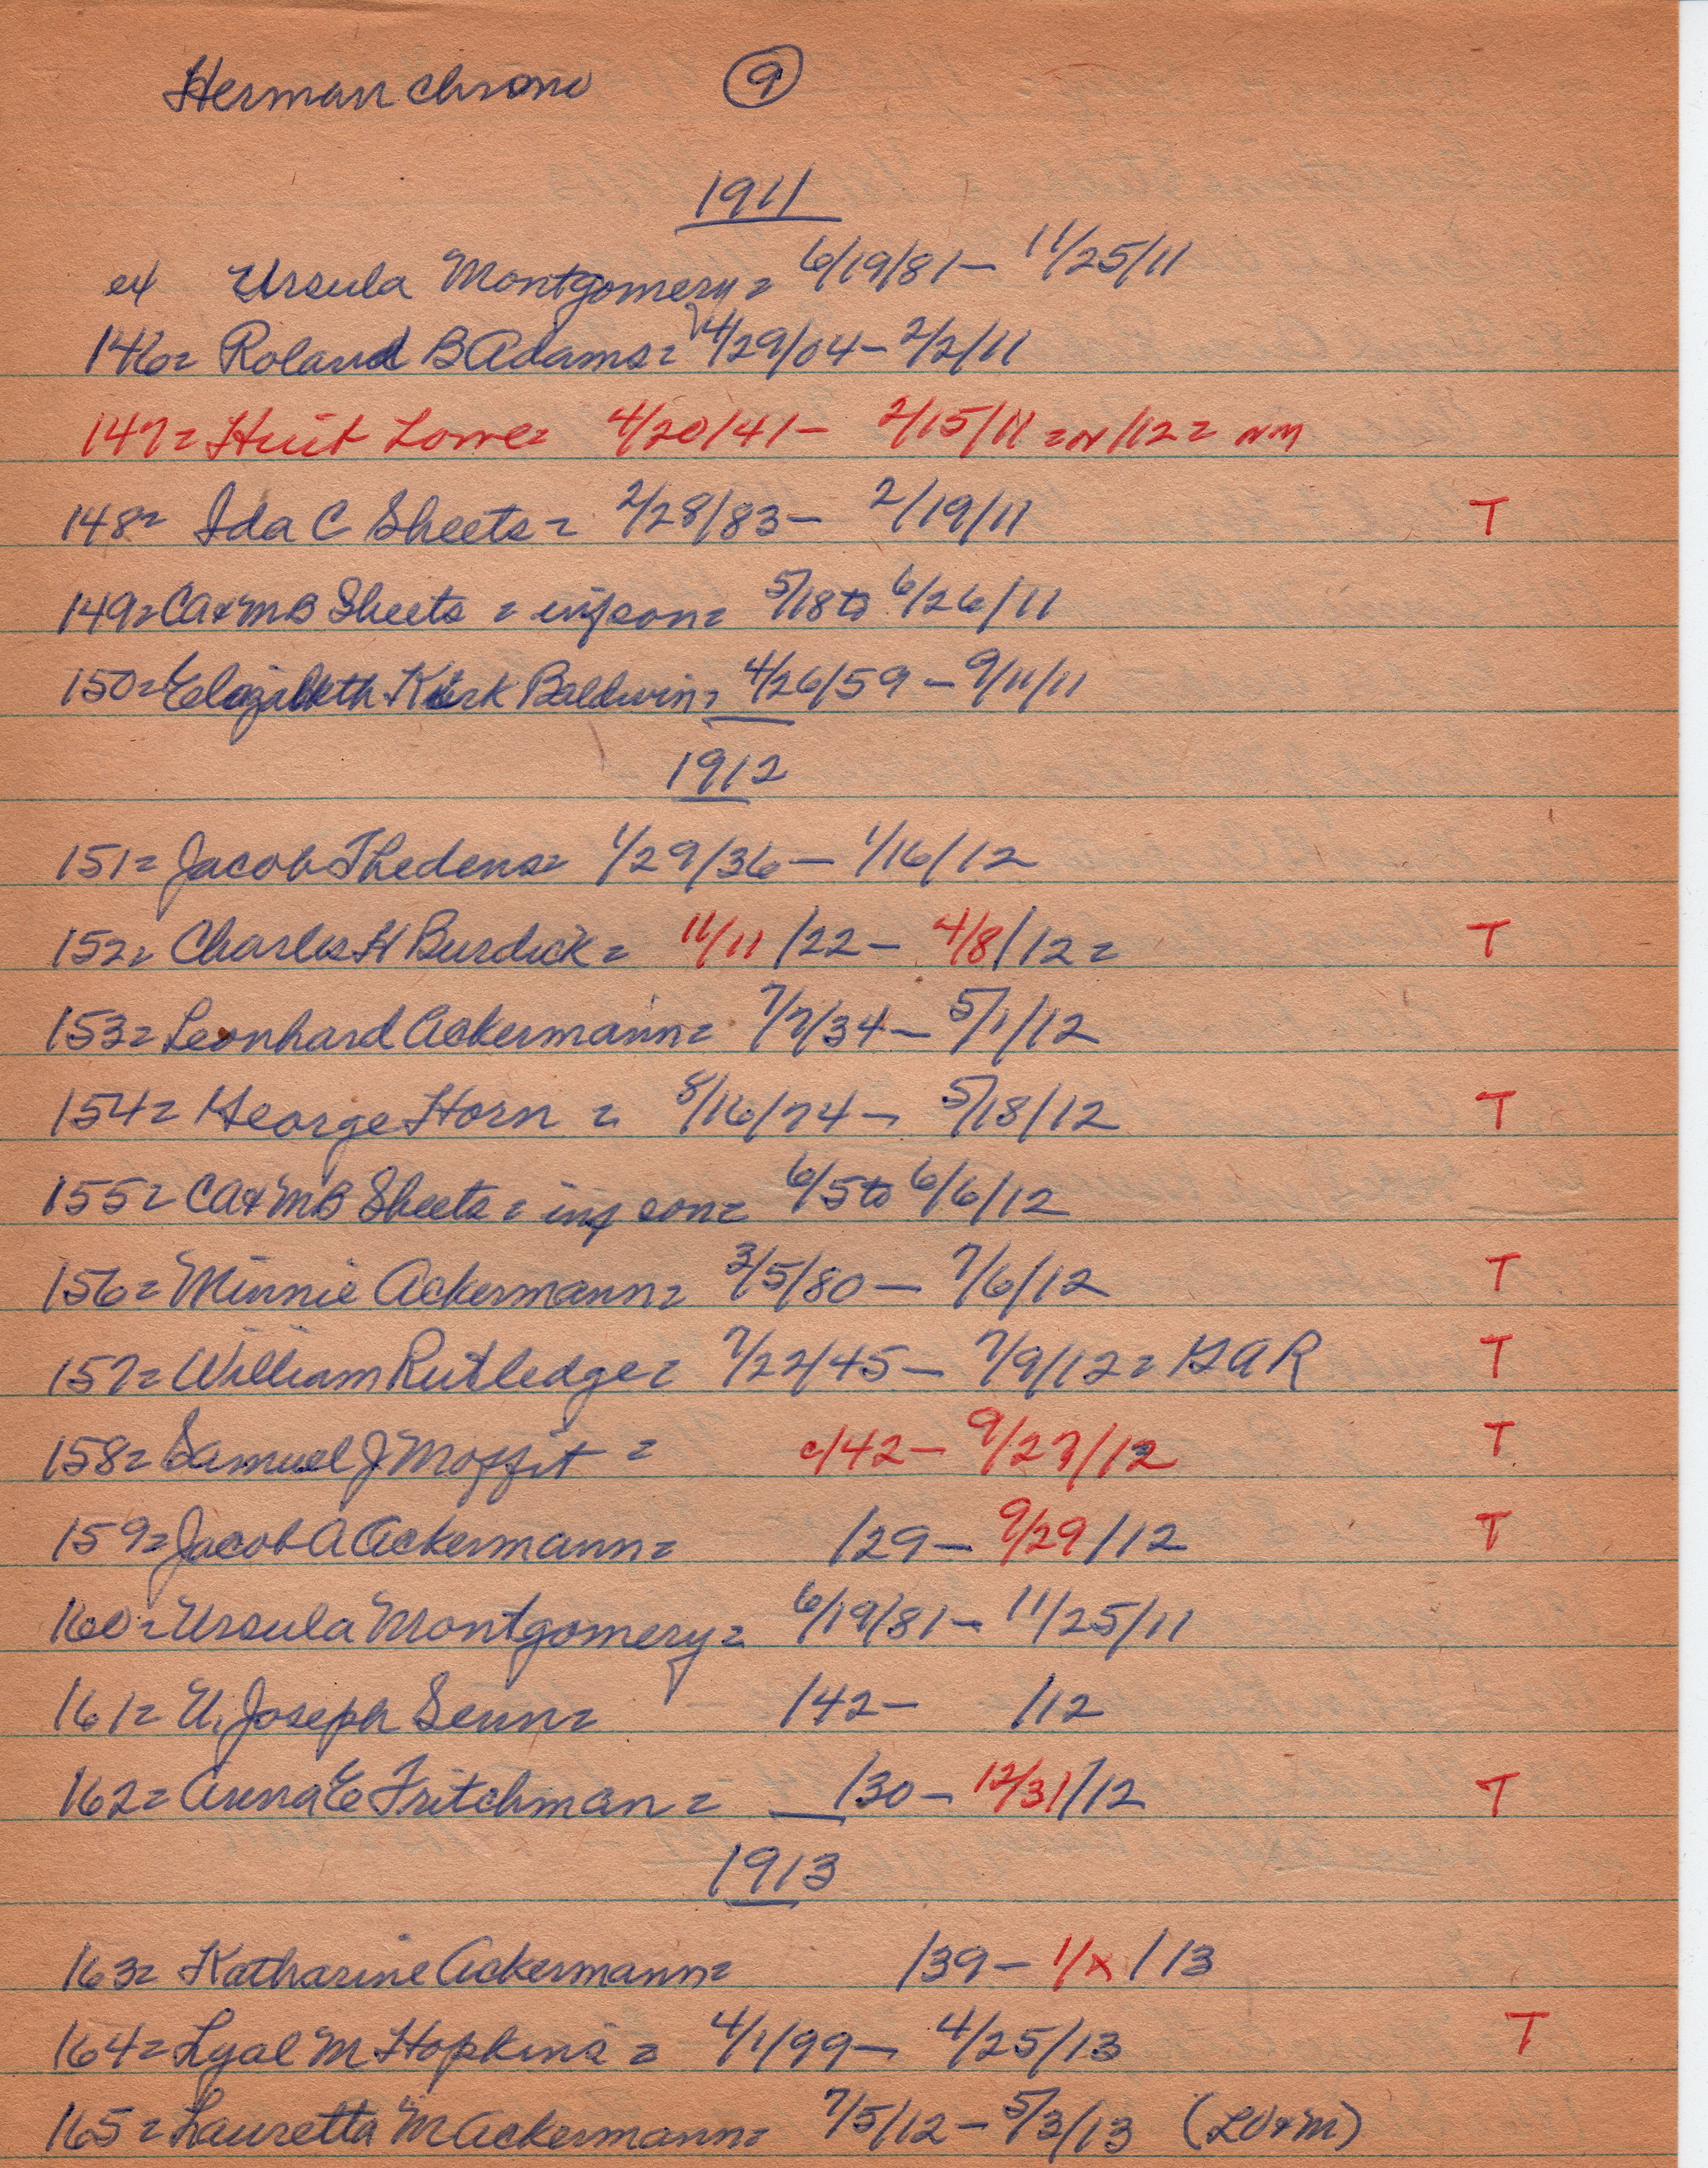 Herman chrono 9
1911
ex Ursula Montgomery = 6/19/81 – 11/25/11
146 = Roland B Adams = 4/29/04 – 2/2/11
147 = Huit Lowe = 4/20/41 – 2/15/11 = N/12 = NM
148 = Ida C Sheets = 2/28/83 – 2/19/11 T
149 = CA & MB Sheets = inf son = 5/18 to 6/26/11
150 = Elizabeth Kirk Baldwin = 4/26/59 – 9/11/11
1912
151 = Jacob Thedens = 1/29/36 – 1/16/12
152 = Charles H Burdick = 11/11/22 – 4/8/12 = T
153 = Leonhard Ackermann = 7/7/34 – 5/1/12
154 = George Horn = 8/16/74 – 5/18/12 T
155 = CA & MB Sheets = inf son = 6/5 to 6/6/12
156 = Minnie Ackermann = 3/5/80 – 7/6/12 T
157 = William Rutledge = 7/22/45 – 7/9/12 = GAR T
158 = Samuel J Moffit = c/42 – 9/27/12 T
159 = Jacob A Ackermann = /29 – 9/29/12 T
160 = Ursula Montgomery = 6/19/81 – 11/25/11
161 = U. Joseph Senn = /42 – /12
162 = Anna E Fritchman = /30 – 12/31/12 T
1913
163 = Katharine Ackermann = /39 – 1/x/13
164 = Lyal M Hopkins = 4/1/99 – 4/25/13 T
165 = Lauretta M Ackermann = 7/5/12 – 5/3/13 (LO & M)